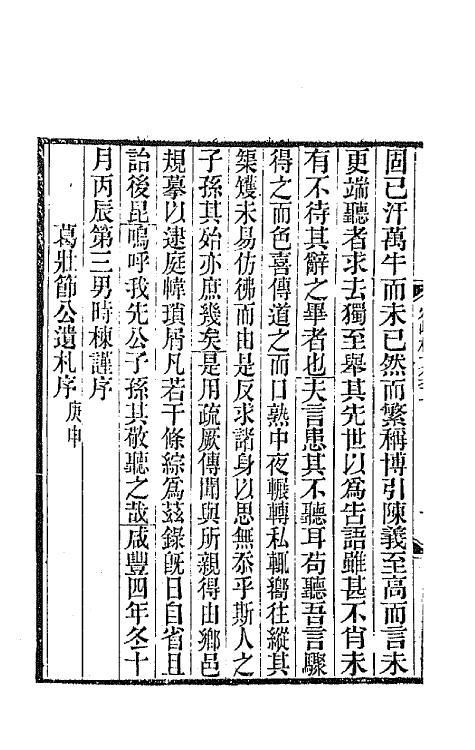 固已汗萬牛而未已然而繁稱博引陳義至高而言未
更端聽者求去獨至舉其先世以為告語雖甚不肖未
有不待其辭之畢者也夫言患其不聽耳苟聽吾言驟
得之而色喜傳道之而口熟中夜輾轉私輒嚮往縱其
榘矱未易仿彿而由是反求諸身以思無忝乎斯人之
子孫其始亦庶幾矣是用疏厥傳聞與所親得由鄉邑
規摹以逮庭幃瑣屑凡若干條綜為茲錄旣日自省且
詒後昆嗚呼我先公子孫其敬聽之哉咸豐四年冬十
月丙辰第三男時棟謹序
葛壯節公遺札序庚申